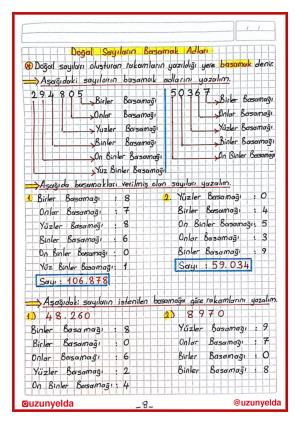 Doğal Sayıların Basamak Adları
Doğal sayıları oluşturan rakamların yazıldığı yere basamak denir.
Aşağıdaki sayıların basamak adlarını yazalım.
294805
Birler Basamağı
Onlar Basamağı
Yüzler Basamağı
Binler Basamağı
On Binler Basamağı
Yüz Binler Basamağı
50367
Birler Basamağı
Onlar Basamağı
Yüzler Basamağı
Binler Basamağı
On Binler Basamağı
Aşağıda basamakları verilmiş olan sayıları yazalım.
1. Birler Basamağı : 8
Onlar Basamağı : 7
Yüzler Basamağı : 8
Binler Basamağı : 6
On Binler Basamağı : 0
Yüz Binler Basamağı : 1
Sayı : 106.878
2. Yüzler Basamağı : 0
Birler Basamağı : 4
On Binler Basamağı : 5
Onlar Basamağı : 3
Binler Basamağı : 9
Sayı : 59.034
Aşağıdaki sayıların istenilen basamağa göre rakamlarını yazalım.
1) 48.260
Binler Basamağı : 8
Birler Basamağı : 0
Onlar Basamağı : 6
Yüzler Basamağı : 2
On Binler Basamağı : 4
2) 8970
Yüzler Basamağı : 9
Onlar Basamağı : 7
Birler Basamağı : 0
Binler Basamağı : 8
@uzunyelda
-8-
@uzunyelda